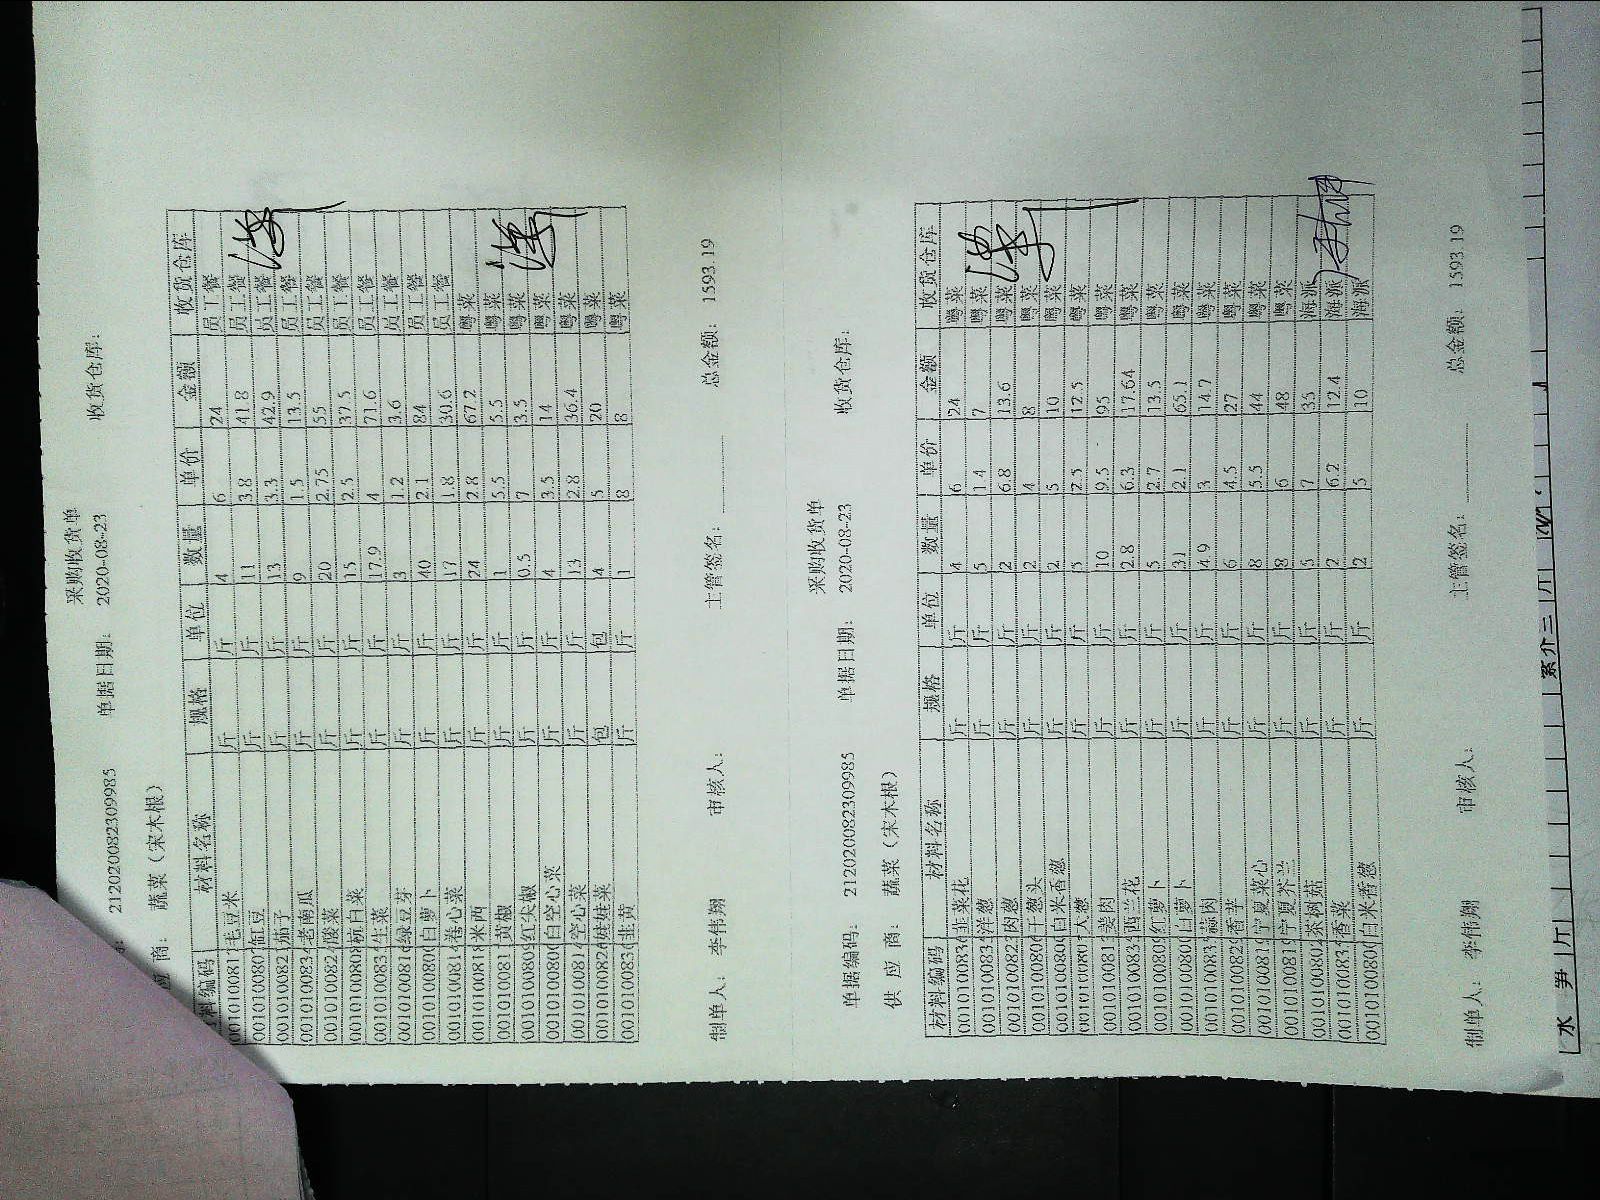 采购收货单
212020082309985 单据日期: 2020-08-23 收货仓库:
应 商: 蔬菜（宋木根）
料编码 材料名称 规格 单位 数量 单价 金额 收货仓库
毛豆米 斤 斤 4 6 24 员工餐
缸豆 斤 斤 11 3.8 41.8 员工餐
茄子 斤 斤 13 3.3 42.9 员工餐
老南瓜 斤 斤 9 1.5 13.5 员工餐
斤 斤 20 2.75 55 员工餐
杭白菜 斤 斤 15 2.5 37.5 员工餐
生菜 斤 斤 17.9 4 71.6 员工餐
绿豆芽 斤 斤 3 1.2 3.6 员工餐
白萝卜 斤 斤 40 2.1 84 员工餐
卷心菜 斤 斤 17 1.8 30.6 员工餐
米西 斤 斤 24 2.8 67.2 粤菜
黄椒 斤 斤 1 5.5 5.5 粤菜
红尖椒 斤 斤 0.5 7 3.5 粤菜
白空心菜 斤 斤 4 3.5 14 粤菜
空心菜 斤 斤 13 2.8 36.4 粤菜
娃娃菜 包 包 4 5 20 粤菜
韭黄 斤 斤 1 8 8 粤菜
制单人: 李伟翔 审核人: 主管签名: 总金额: 1593.19
采购收货单
单据编码: 212020082309985 单据日期: 2020-08-23 收货仓库:
供 应 商: 蔬菜（宋木根）
材料编码 材料名称 规格 单位 数量 单价 金额 收货仓库
韭菜花 斤 斤 4 6 24 粤菜
洋葱 斤 斤 5 1.4 7 粤菜
肉葱 斤 斤 2 6.8 13.6 粤菜
干葱头 斤 斤 2 4 8 粤菜
白米香葱 斤 斤 2 5 10 粤菜
大葱 斤 斤 5 2.5 12.5 粤菜
姜肉 斤 斤 10 9.5 95 粤菜
西兰花 斤 斤 2.8 6.3 17.64 粤菜
红萝卜 斤 斤 5 2.7 13.5 粤菜
白萝卜 斤 斤 31 2.1 65.1 粤菜
蒜肉 斤 斤 4.9 3 14.7 粤菜
香芋 斤 斤 6 4.5 27 粤菜
宁夏菜心 斤 斤 8 5.5 44 粤菜
宁夏芥兰 斤 斤 8 6 48 粤菜
茶树菇 斤 斤 5 7 35 海派
香菜 斤 斤 2 6.2 12.4 海派
白米香葱 斤 斤 2 5 10 海派
制单人: 李伟翔 审核人: 主管签名: 总金额: 1593.19
水 笋 斤